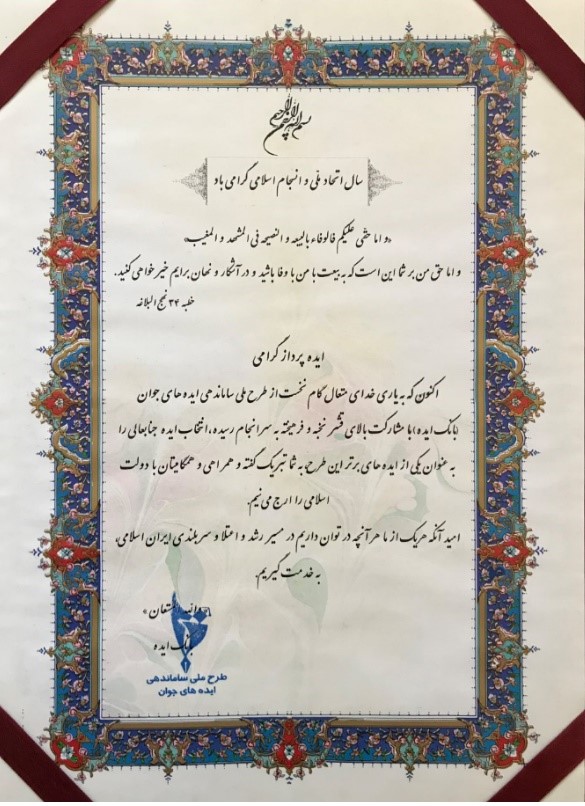 بسم الله الرحمن الرحیم
سال اتحاد ملّی و انسجام اسلامی گرامی باد
«و اما حقّی علیکم فالوفاء بالبیعه و النصیحه فی المشهد و المغیب»
و اما حق من بر شما این است که به بیعت با من با وفا باشید و در آشکار و نهان برایم خیرخواهی کنید.
خطبه ۳۴ نهج البلاغه
ایده پرداز گرامی
اکنون که به یاری خدای متعال گام نخست از طرح ملی ساماندهی ایده های جوان
(بانک ایده) با مشارکت بالای قشر نخبه و فرهیخته به سرانجام رسیده، انتخاب ایده جنابعالی را
به عنوان یکی از ایده های برتر این طرح، به شما تبریک گفته و همراهی و همگامیتان با دولت
اسلامی را ارج می نهیم.
امید آنکه هریک از ما هر آنچه در توان داریم در مسیر رشد و اعتلا و سربلندی ایران اسلامی،
به خدمت گیریم.
والله المستعان »
بانک ایده
طرح ملی ساماندهی
ایده های جوان